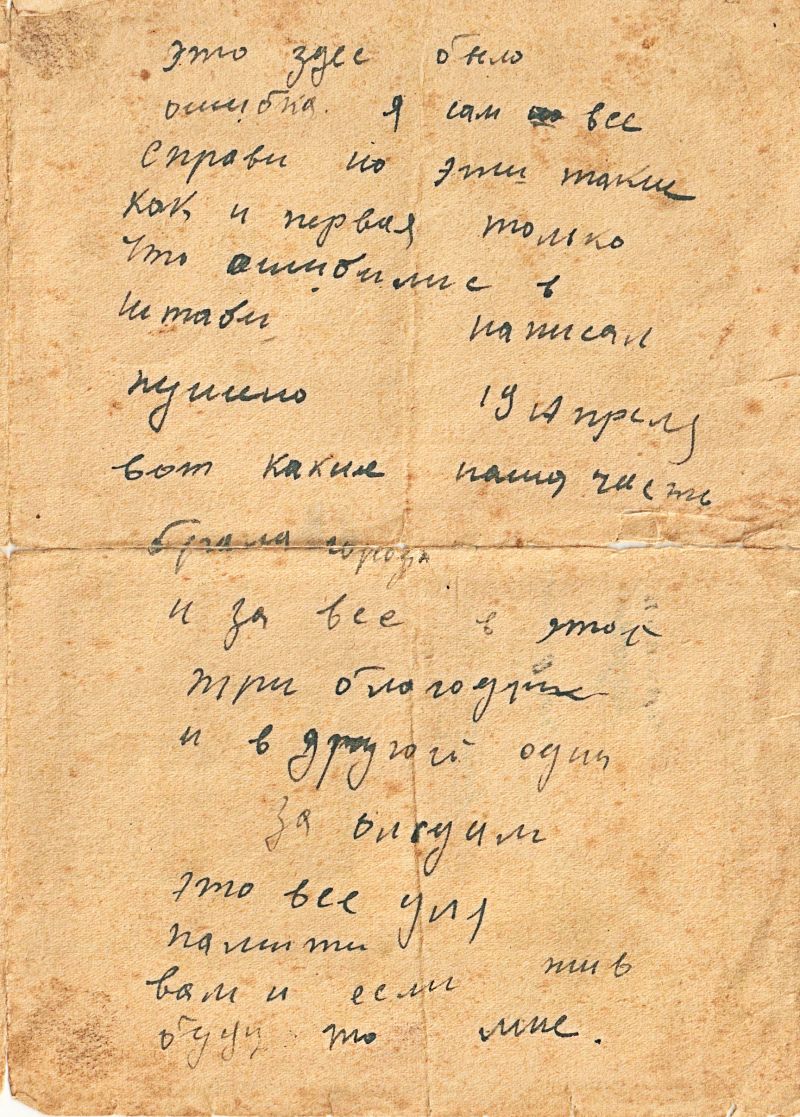 это здес было
ошибка. я сам все
справи но эти такие
как и первая только
что ошибилис в
штаби написал
19 Апреля
вот какие наша часть
брала города
и за все в этой
три благодрн
и в другой один
за
это все для
памяти
вам и если жив
буду то мне.